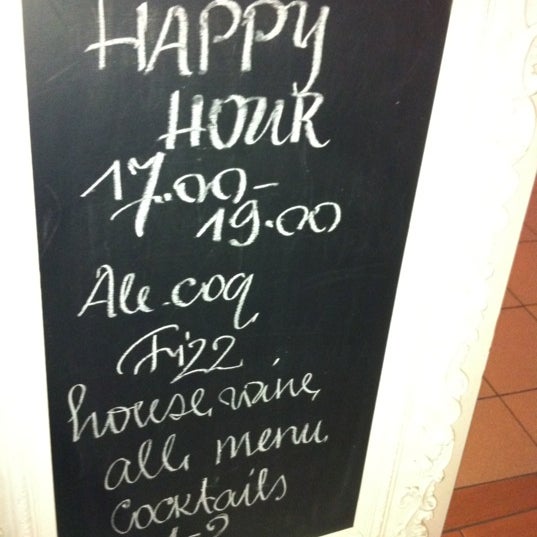 HAPPY
HOUR
17.00-
19.00
Ale.coq
Fizz
house wine,
all menu
cocktails